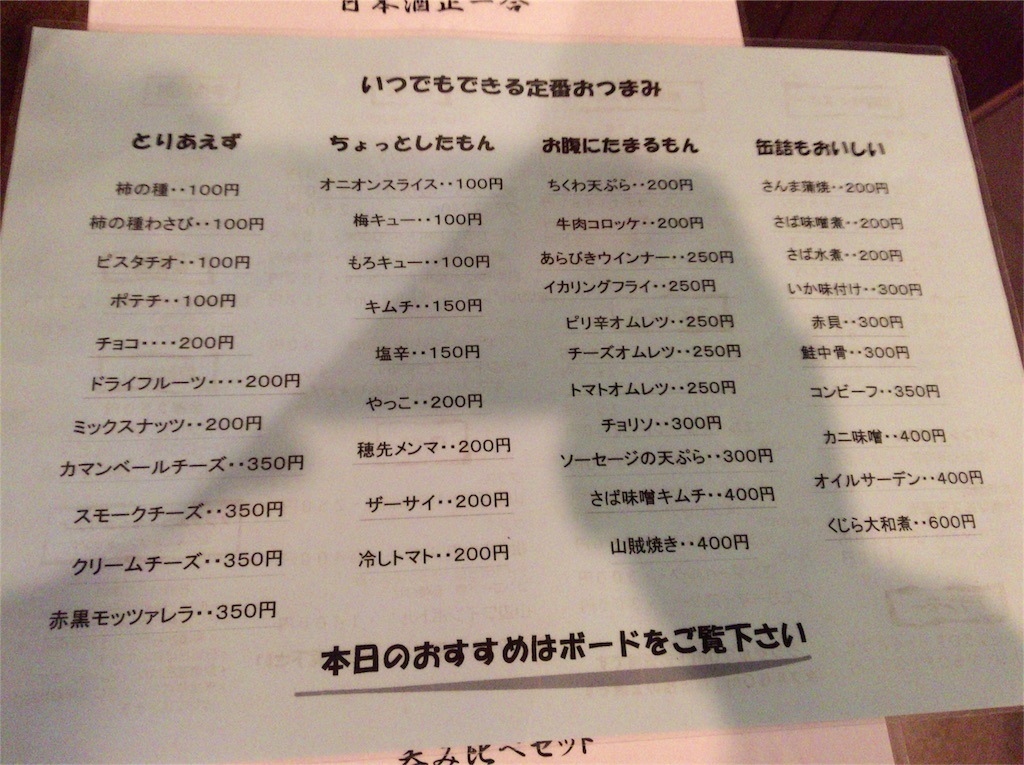 日本酒正一合
いつでもできる定番おつまみ
とりあえず
柿の種‥100円
柿の種わさび‥100円
ピスタチオ‥100円
ポテチ‥100円
チョコ‥‥200円
ドライフルーツ‥‥200円
ミックスナッツ‥200円
カマンベールチーズ‥350円
スモークチーズ‥350円
クリームチーズ‥350円
赤黒モッツァレラ‥350円
ちょっとしたもん
オニオンスライス‥100円
梅キュー‥100円
もろキュー‥100円
キムチ‥150円
塩辛‥150円
やっこ‥200円
穂先メンマ‥200円
ザーサイ‥200円
冷しトマト‥200円
お腹にたまるもん
ちくわ天ぷら‥200円
牛肉コロッケ‥200円
あらびきウインナー‥250円
イカリングフライ‥250円
ピリ辛オムレツ‥250円
チーズオムレツ‥250円
トマトオムレツ‥250円
チョリソ‥300円
ソーセージの天ぷら‥300円
さば味噌キムチ‥400円
山賊焼き‥400円
缶詰もおいしい
さんま蒲焼‥200円
さば味噌煮‥200円
さば水煮‥200円
いか味付け‥300円
赤貝‥300円
鮭中骨‥300円
コンビーフ‥350円
カニ味噌‥400円
オイルサーデン‥400円
くじら大和煮‥600円
本日のおすすめはボードをご覧下さい
呑み比べセット